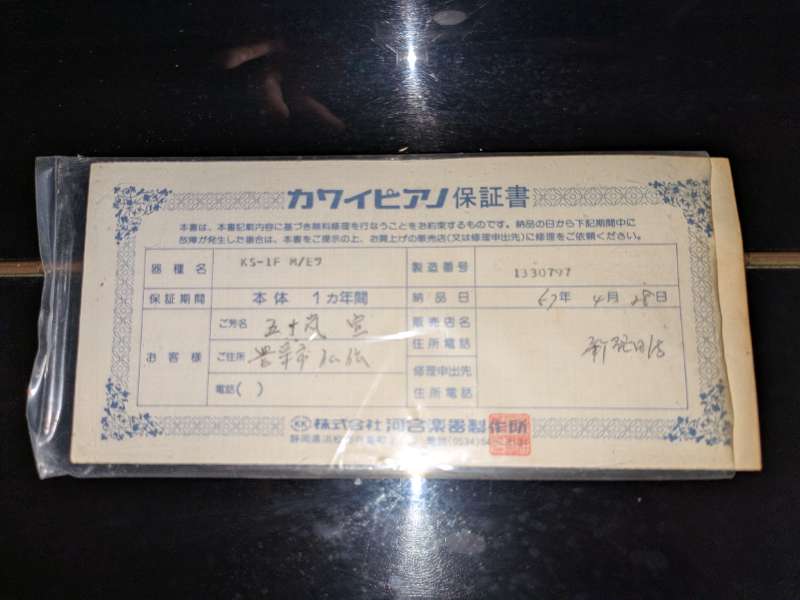 カワイピアノ 保証書
本書は、本書記載内容に基づき無料修理を行なうことをお約束するものです。納品の日から下記期間中に
故障が発生した場合は、本書をご提示の上、お買上げの販売店(又は修理申出先)に修理をご依頼ください。
器種名 KS-1F M/Eク 製造番号 1330797
保証期間 本体 1カ年間 納品日 57年 4月 28日
お客様 ご芳名 五十嵐
ご住所
電話( )
販売店名
住所電話
修理申出先
住所電話
株式会社 河合楽器製作所
静岡県浜松市 電話(0534)